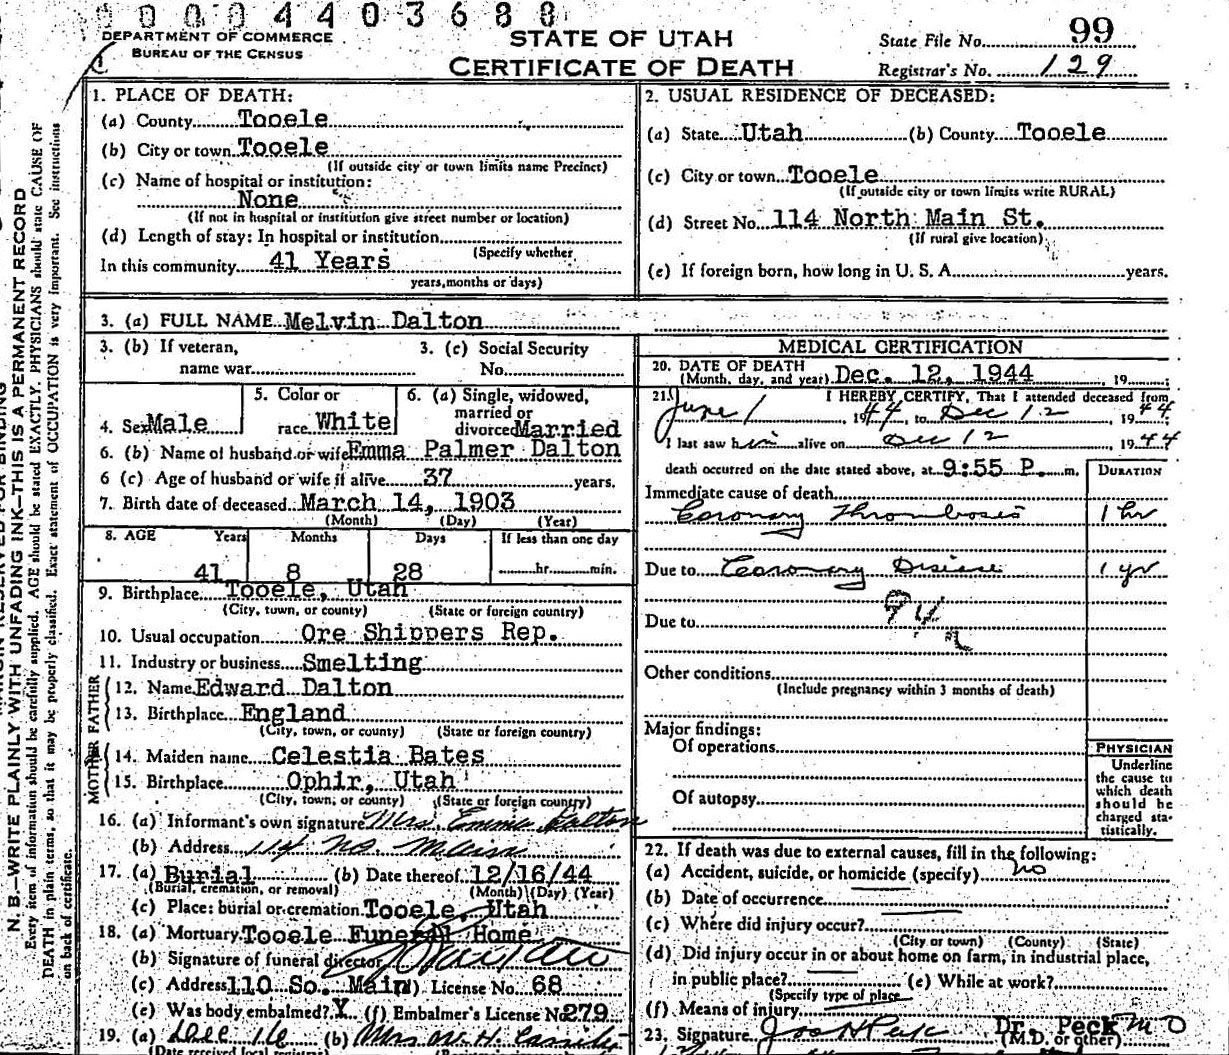 0 0 0 0 4 4 0 3 6 8 8
DEPARTMENT OF COMMERCE
BUREAU OF THE CENSUS
STATE OF UTAH
CERTIFICATE OF DEATH
State File No. 99
Registrar's No. 129
1. PLACE OF DEATH:
(a) County Tooele
(b) City or town Tooele
(If outside city or town limits name Precinct)
(c) Name of hospital or institution:
None
(If not in hospital or institution give street number or location)
(d) Length of stay: In hospital or institution
(Specify whether
In this community 41 Years
years, months or days)
2. USUAL RESIDENCE OF DECEASED:
(a) State Utah (b) County Tooele
(c) City or town Tooele
(If outside city or town limits write RURAL)
(d) Street No. 114 North Main St.
(If rural give location)
(e) If foreign born, how long in U. S. A. years.
3. (a) FULL NAME Melvin Dalton
3. (b) If veteran,
name war
3. (c) Social Security
No.
4. Sex Male
5. Color or
race White
6. (a) Single, widowed,
married or
divorced Married
6. (b) Name of husband or wife Emma Palmer Dalton
6 (c) Age of husband or wife if alive 37 years.
7. Birth date of deceased March 14, 1903
(Month) (Day) (Year)
8. AGE Years Months Days If less than one day
41 8 28 hr. min.
9. Birthplace Tooele, Utah
(City, town, or county) (State or foreign country)
10. Usual occupation Ore Shippers Rep.
11. Industry or business Smelting
FATHER
12. Name Edward Dalton
13. Birthplace England
(City, town, or county) (State or foreign country)
MOTHER
14. Maiden name Celestia Bates
15. Birthplace Ophir, Utah
(City, town, or county) (State or foreign country)
16. (a) Informant's own signature Mrs. Emma Dalton
(b) Address 114 No Main
17. (a) Burial (b) Date thereof 12/16/44
(Burial, cremation, or removal) (Month) (Day) (Year)
(c) Place: burial or cremation Tooele, Utah
18. (a) Mortuary Tooele Funeral Home
(b) Signature of funeral director
(c) Address 110 So. Main License No. 68
(e) Was body embalmed? X (f) Embalmer's License No 279
19. (a) Dec 16 (b) Mrs W. H. Cassity
(Date received local registrar)
MEDICAL CERTIFICATION
20. DATE OF DEATH
(Month, day, and year) Dec. 12, 1944 , 19
21. I HEREBY CERTIFY, That I attended deceased from
June 1 1944, to Dec 12 1944
I last saw him alive on Dec 12 1944
death occurred on the date stated above, at 9:55 P. m.
DURATION
Immediate cause of death
Coronary Thrombosis 1 hr
Due to Coronary Disease 1 yr
94a
Due to
Other conditions
(Include pregnancy within 3 months of death)
Major findings:
Of operations
Of autopsy
PHYSICIAN
Underline
the cause to
which death
should be
charged sta-
tistically.
22. If death was due to external causes, fill in the following:
(a) Accident, suicide, or homicide (specify) no
(b) Date of occurrence
(c) Where did injury occur?
(City or town) (County) (State)
(d) Did injury occur in or about home on farm, in industrial place,
in public place? (e) While at work?
(Specify type of place
(f) Means of injury
23. Signature Jos H Peck Dr. Peck M D
(M.D. or other)
N. B.—WRITE PLAINLY WITH UNFADING INK—THIS IS A PERMANENT RECORD
Every item of information should be carefully supplied. AGE should be stated EXACTLY. PHYSICIANS should state CAUSE OF
DEATH in plain terms, so that it may be properly classified. Exact statement of OCCUPATION is very important. See instructions
on back of certificate.